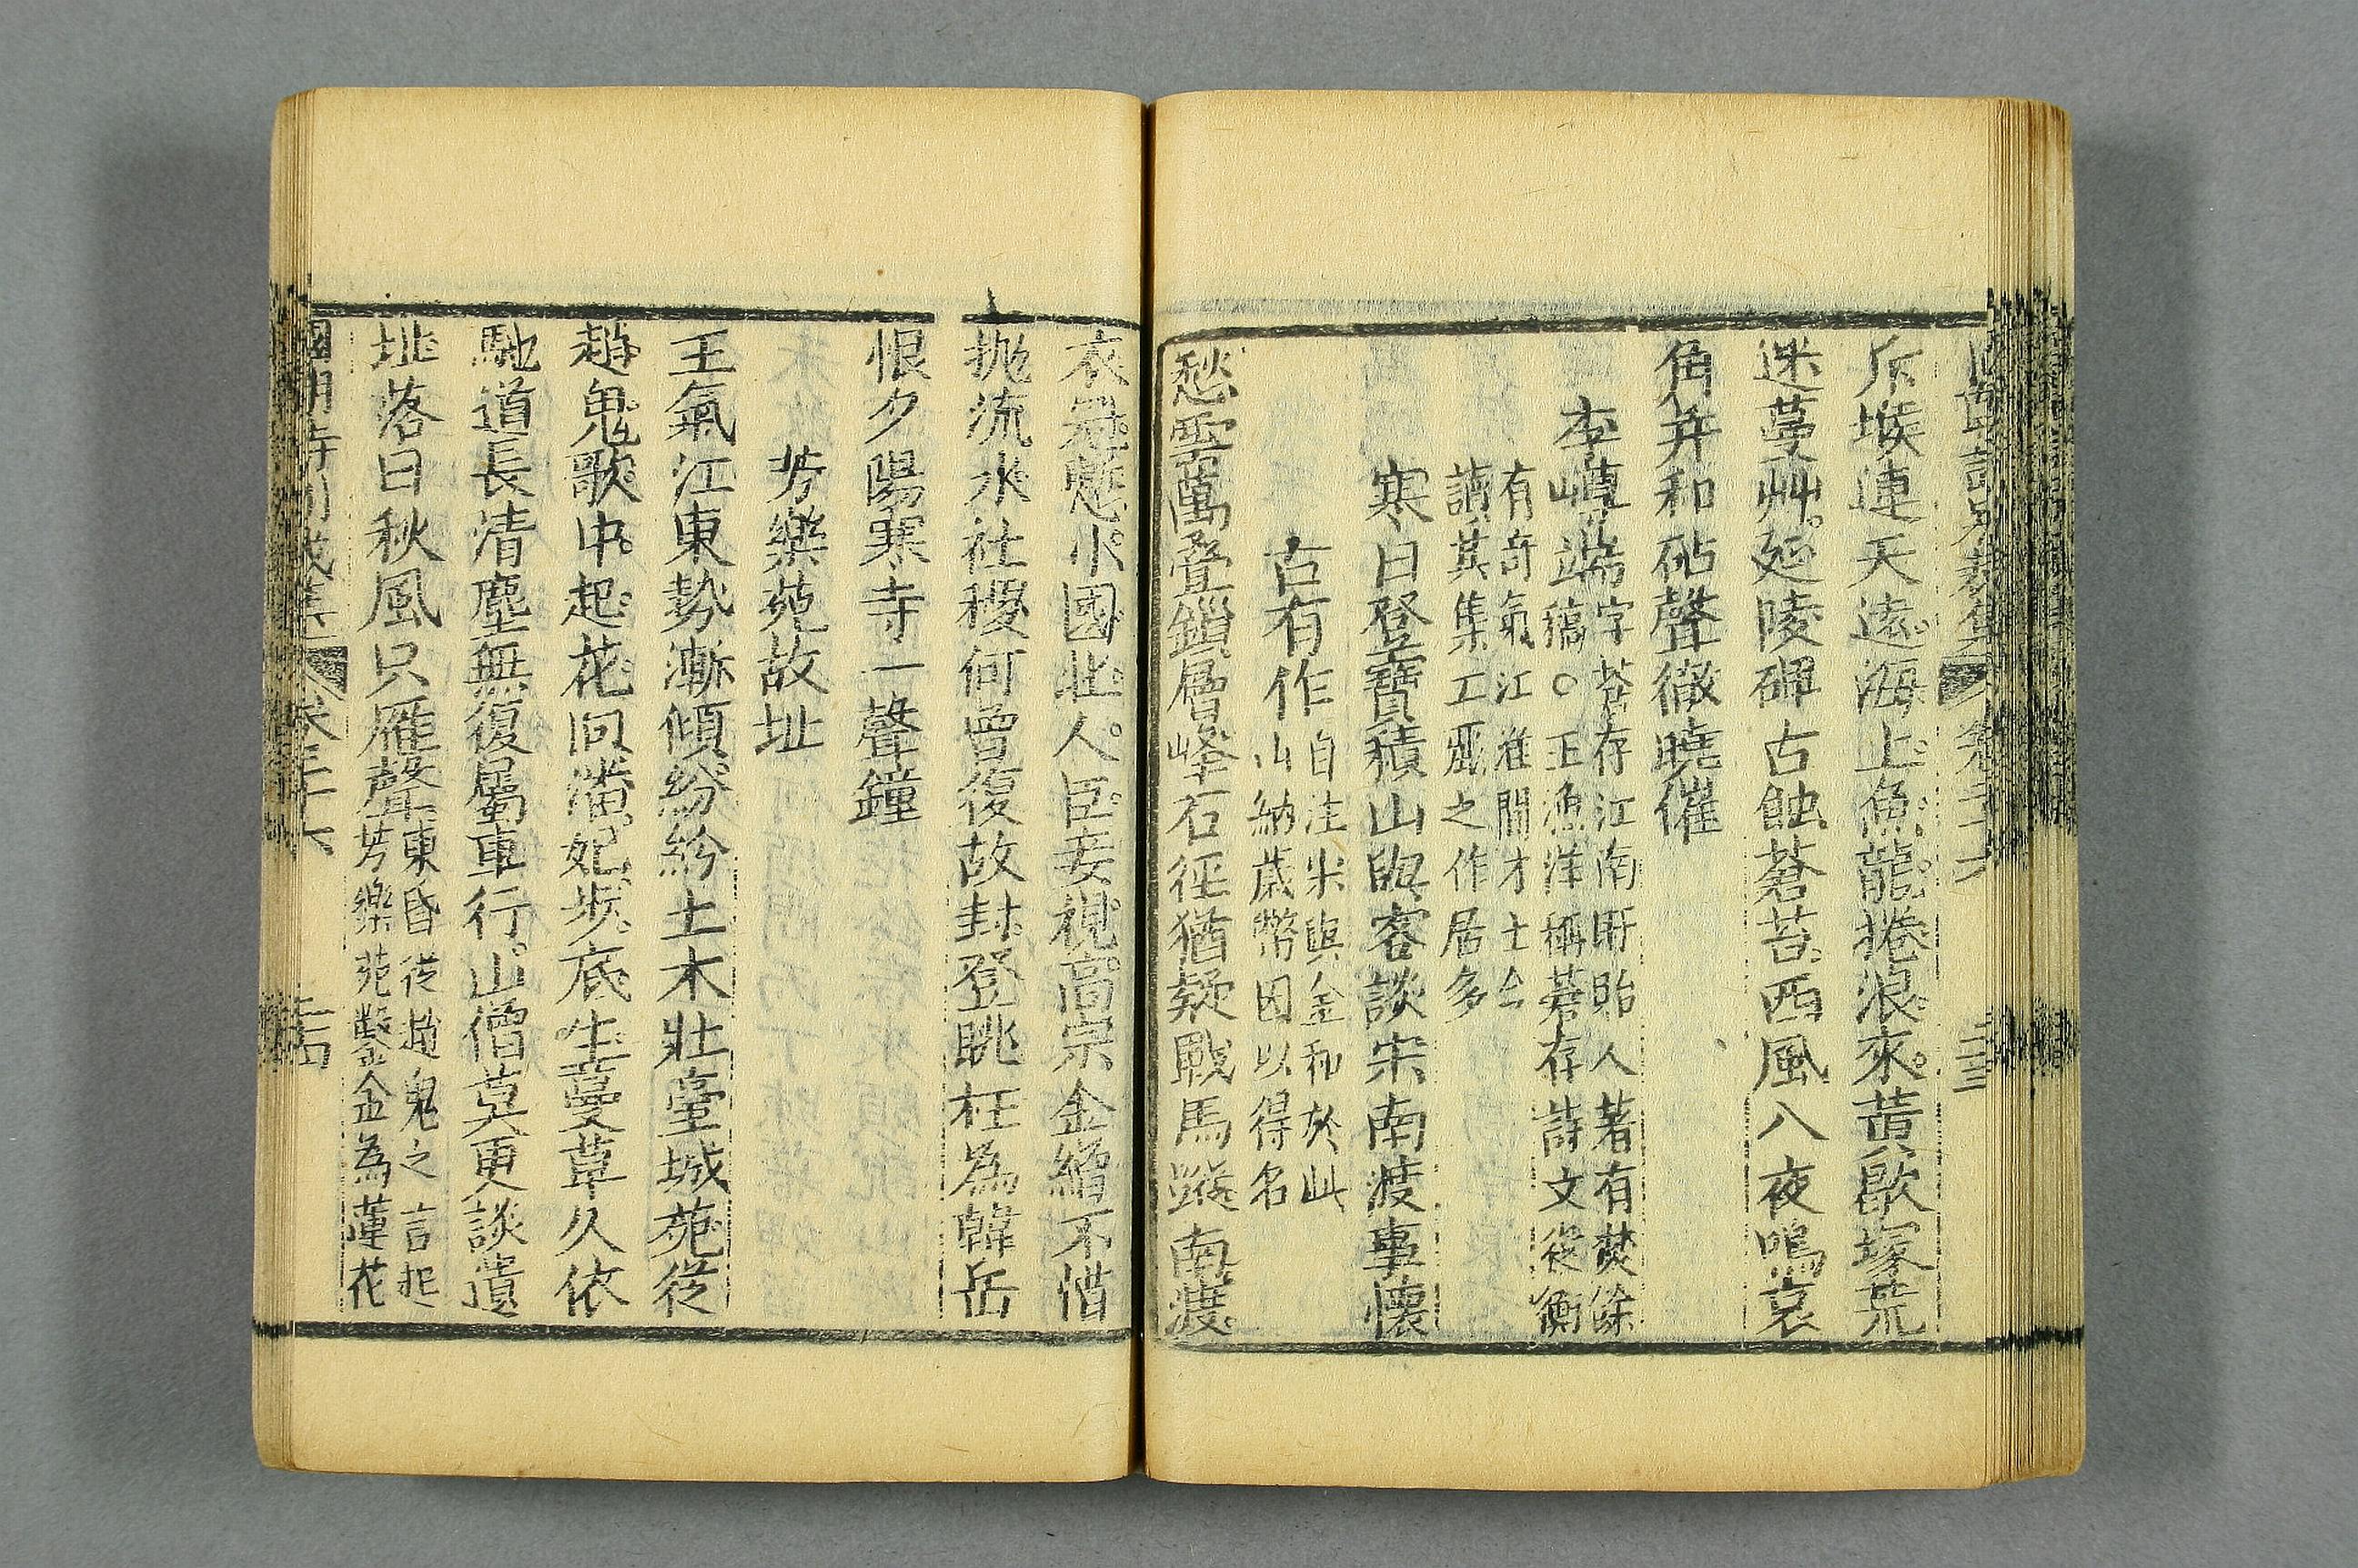 斥堠連天遠海上魚龍捲浪來黃歇塚荒
迷蔓艸延陵碑古蝕蒼苔西風八夜嗚哀
角并和砧聲徹曉催
李嶟瑞字蒼存江南盱眙人著有焚餘
稿○王漁洋稱蒼存詩文從衡
有奇氣江淮間才士也
讀其集工麗之作居多
寒日登寶積山與客談宋南渡事懷
古有作自注宋與金和於此
山納歲幣因以得名
愁雲萬疊鎖層峰石徑猶疑戰馬蹤南渡
衣冠慙小國北人臣妾視高宗金繒不惜
拋流水社稷何曾復故封登眺枉為韓岳
恨夕陽寒寺一聲鐘
芳樂苑故址
王氣江東勢漸傾紛紛土木壯臺城苑從
趙鬼歌中起花向潘妃步底生蔓草久依
馳道長清塵無復屬車行山僧莫更談遺
址落日秋風只雁聲東昏從趙鬼之言起
芳樂苑鑿金為蓮花
卷三十六